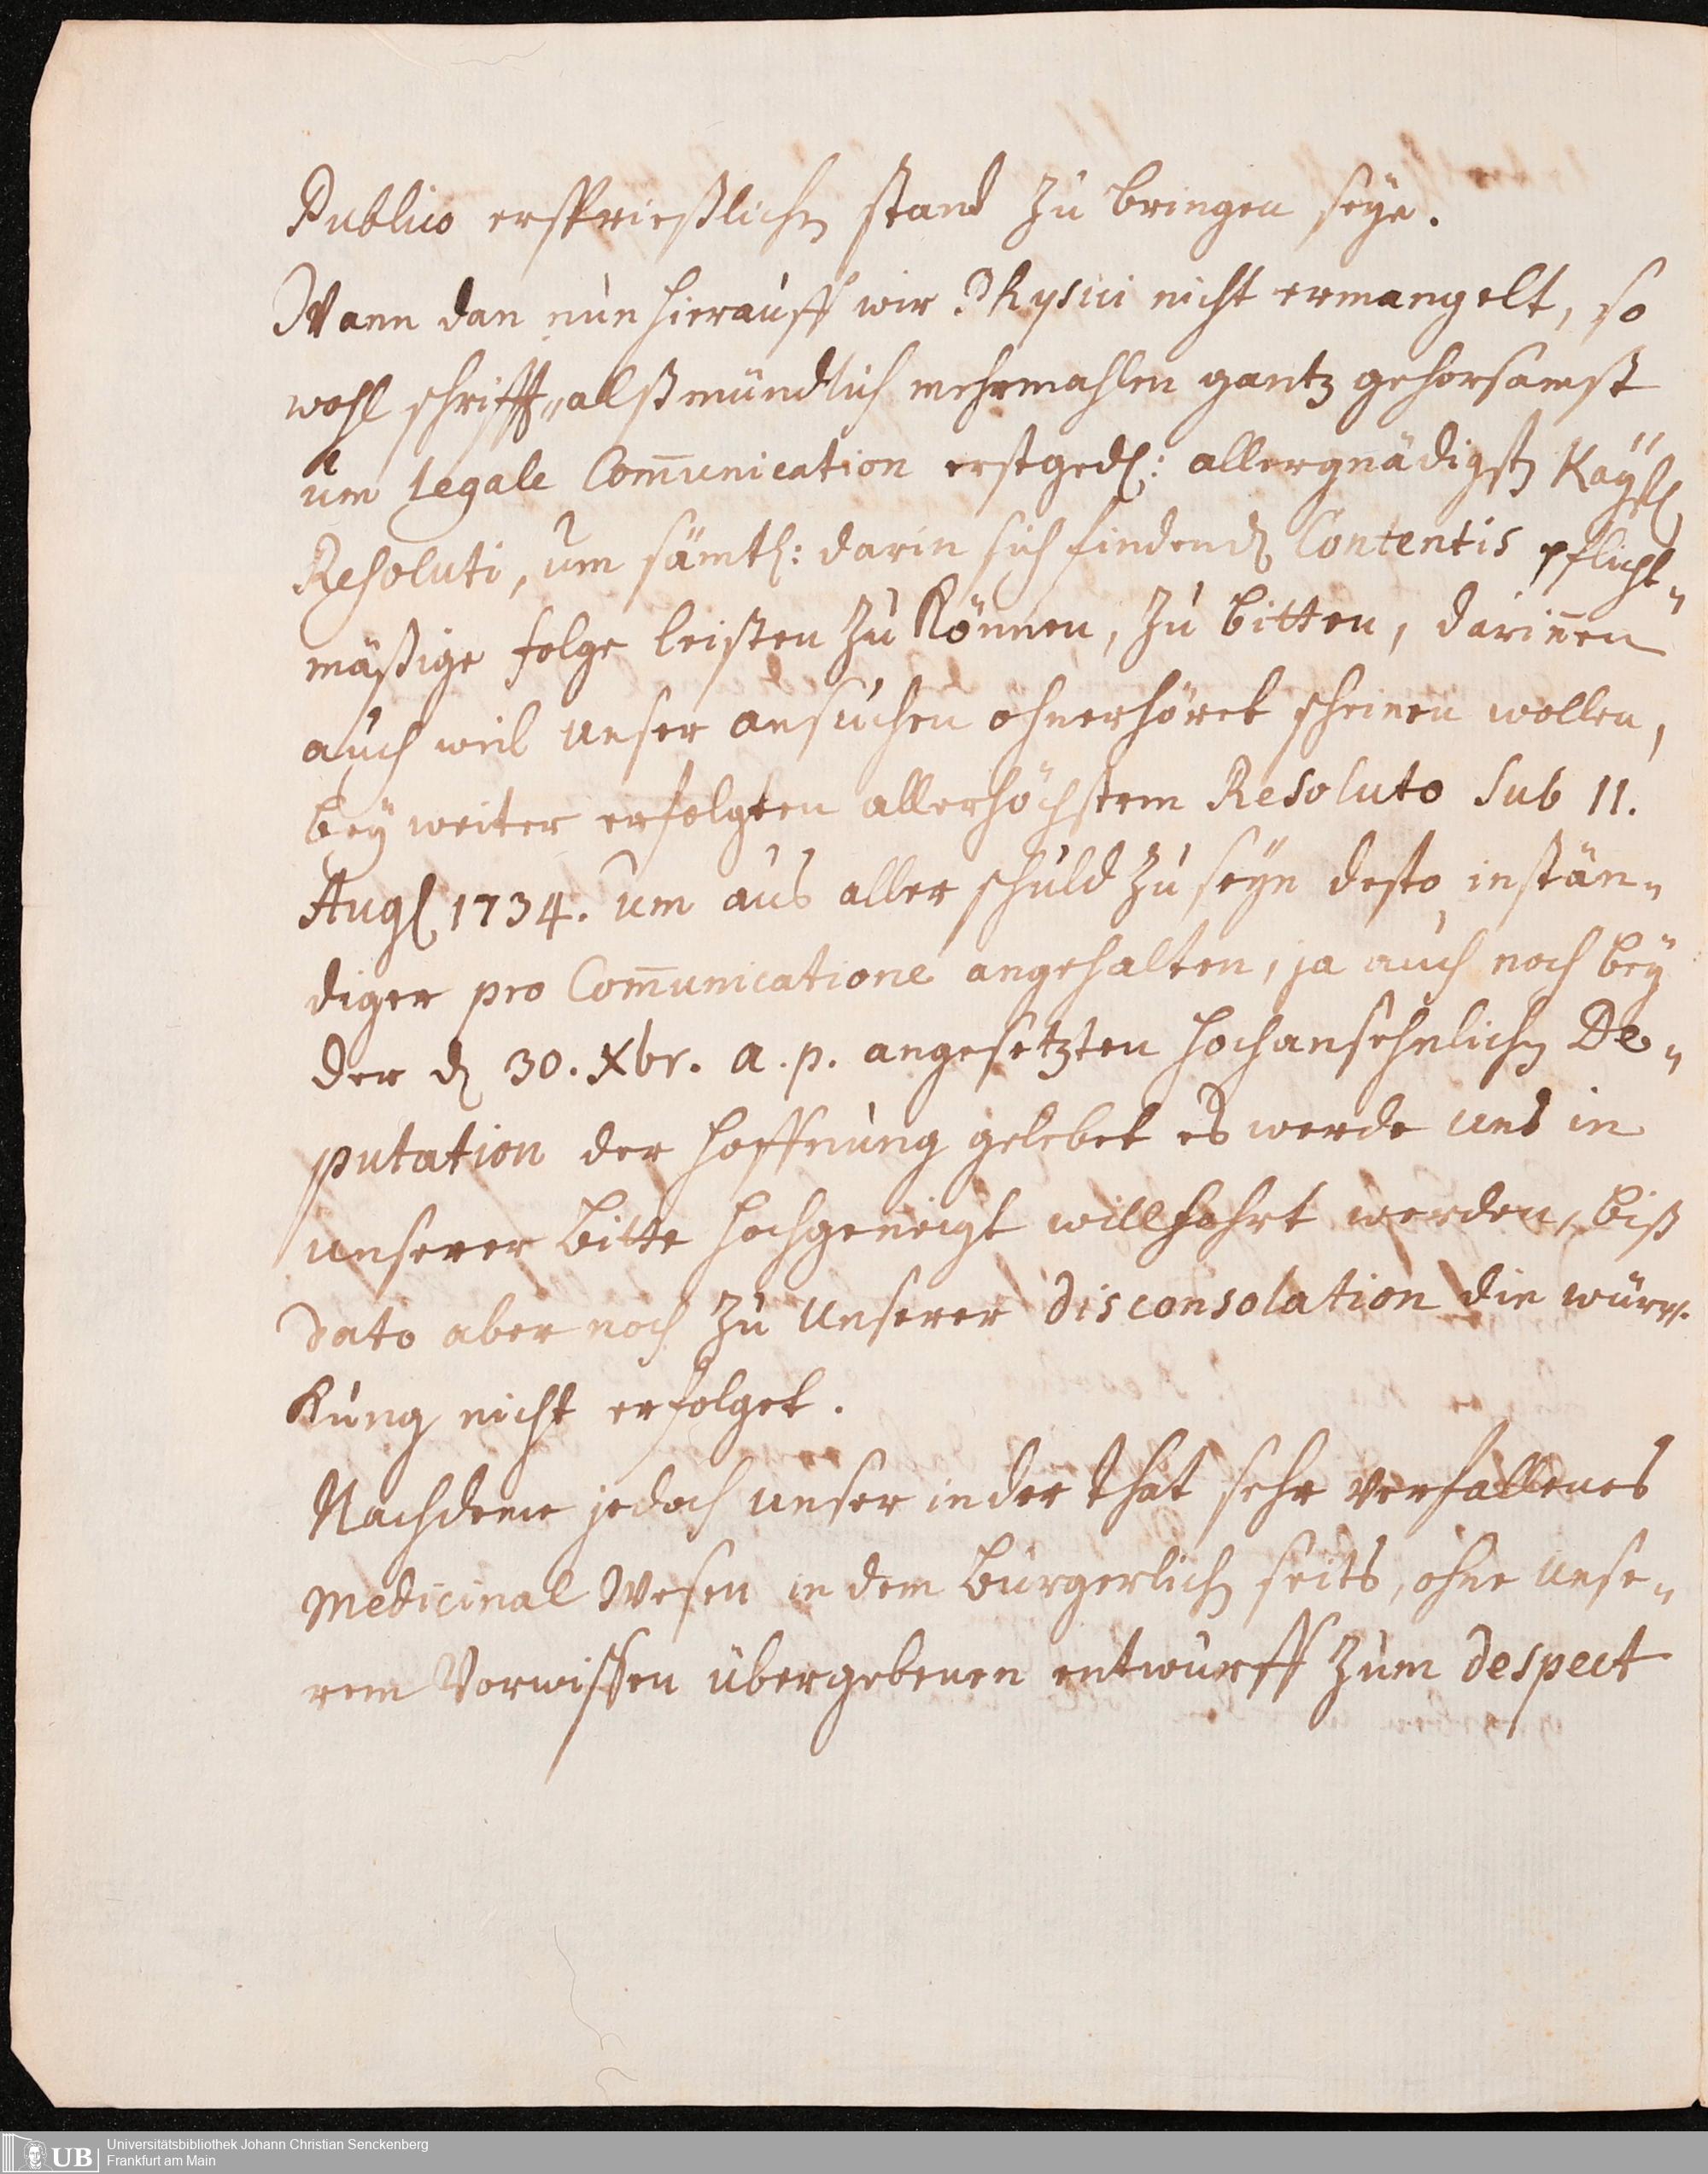 Publico erspriesslichen stand zu bringen seye.
Wann dan nun hierauff wir Physici nicht ermangelt, so
wohl schrifft„ alß mündlich mehrmahlen gantz gehorsamst
um legale Com̅unication erstged: allergnädigsten Kaysl
Resoluti, um sämtl: darin sich findenden Contentis pflicht„
mäßige folge leisten zu Können, zu bitten, darin̅en
auch weil unser ansuchen ohnerhöret scheinen wollen,
bey weiter erfolgten allerhöchstem Resoluto sub 11.
Aug 1734. um aus aller schuld zu seyn desto instän„
diger pro Com̅unicatione angehalten, ja auch noch bey
der d 30. Xbr. a. p. angesetzten hochansehnlichen De„
putation der hoffnung gelebet es werde uns in
unserer bitte hochgeneigt willfahrt werden, biß
dato aber noch zu unserer disconsolation die wür„
Kung nicht erfolget.
Nachdeme jedoch unser in der that sehr verfallenes
Medicinal Wesen in dem bürgerlichen seits, ohne unse„
rem Vorwissen übergebenen entwurff zum despect
UB
Universitätsbibliothek Johann Christian Senckenberg
Frankfurt am Main